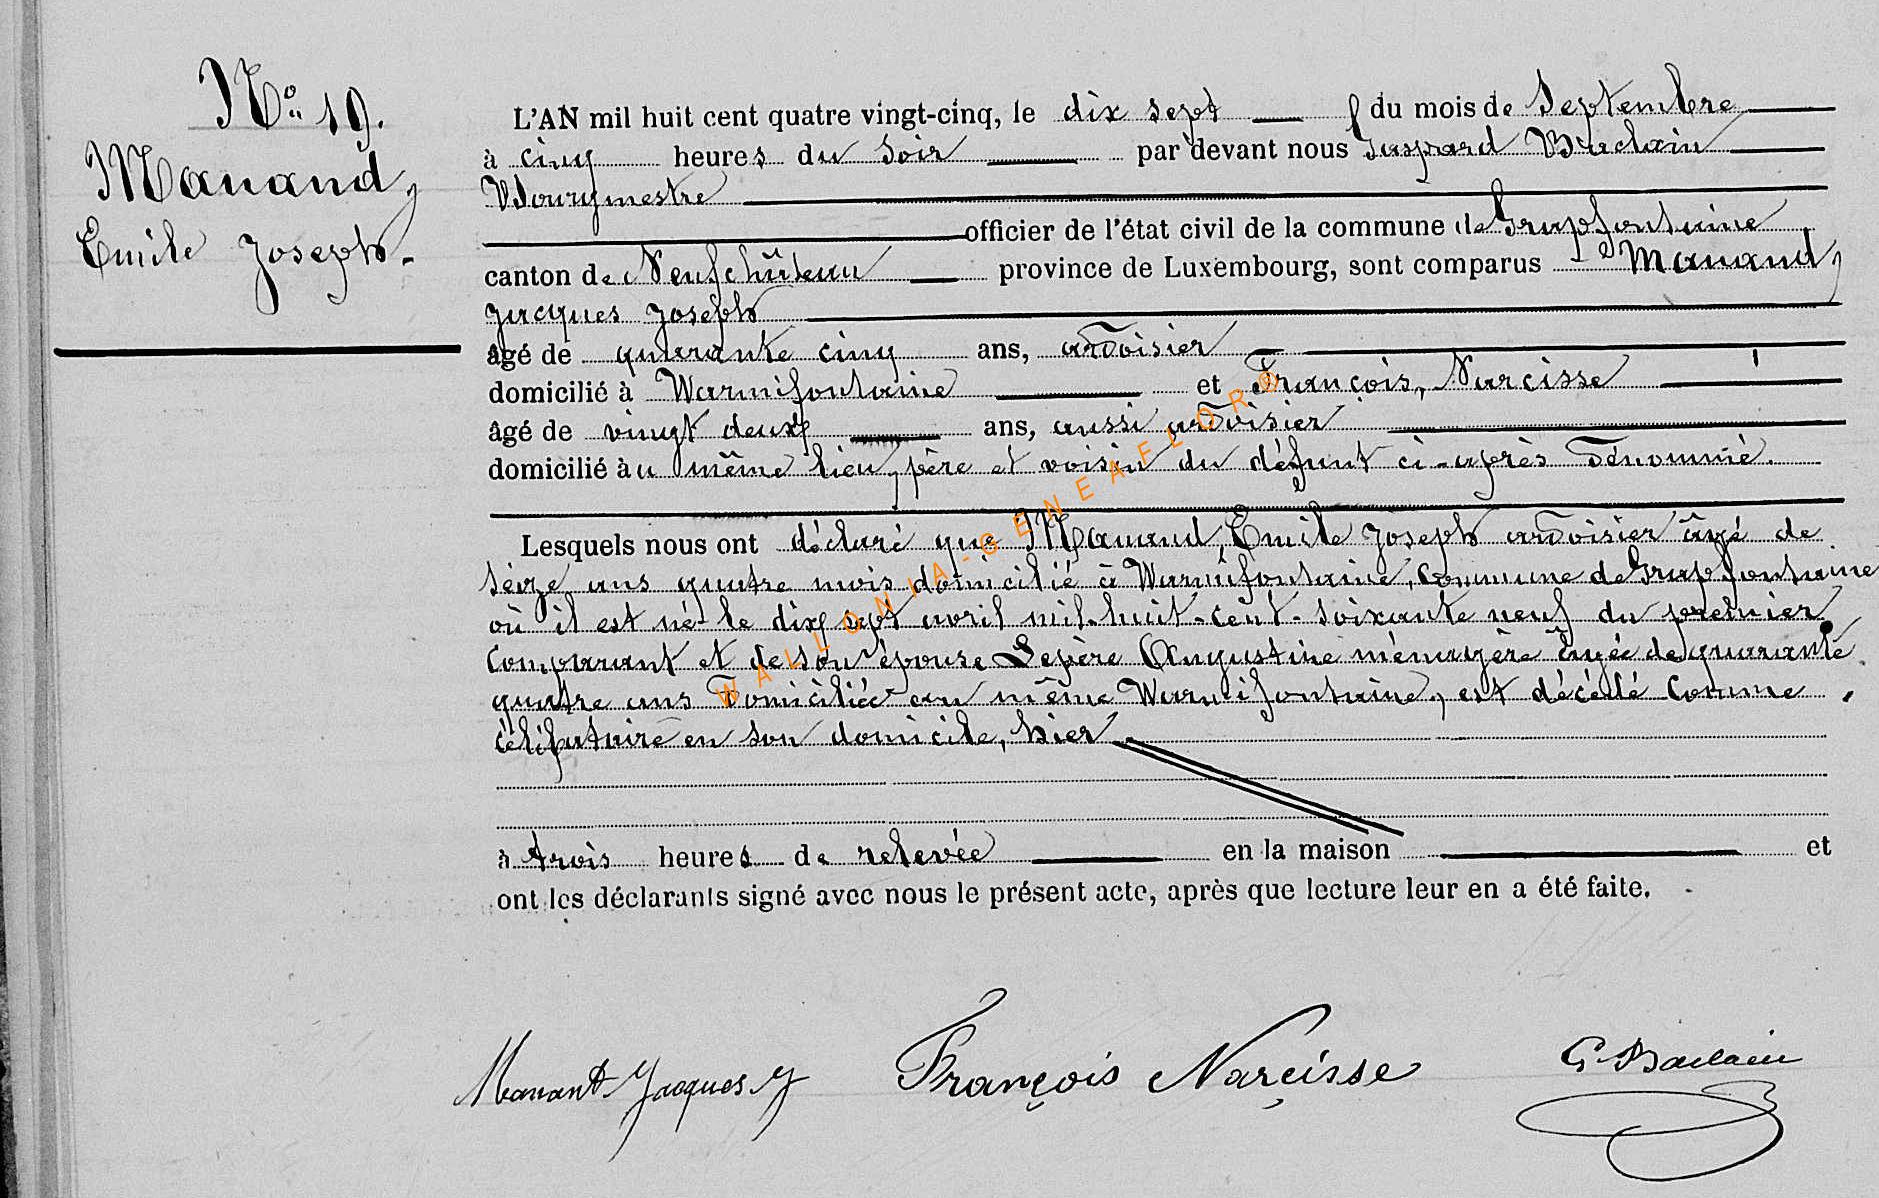 No 19.
Manand,
Emile Joseph.
L'AN mil huit cent quatre vingt-cinq, le dix sept du mois de Septembre
à cinq heures du soir par devant nous Gaspard
Bourgmestre
officier de l'état civil de la commune de Grapfontaine
canton de Neufchâteau province de Luxembourg, sont comparus 1° Manand,
Jacques Joseph
âgé de quarante cinq ans, ardoisier
domicilié à Warmifontaine et François, Narcisse
âgé de vingt deux ans, aussi ardoisier
domicilié au même lieu, père et voisin du défunt ci-après dénommé.
Lesquels nous ont déclaré que Manand, Emile Joseph ardoisier âgé de
sèize ans quatre mois domicilié à Warmifontaine, commune de Grapfontaine
où il est né le dix sept avril mil-huit-cent-soixante neuf du premier
comparant et de son épouse Lepère Augustine ménagère âgée de quarante
quatre ans domiciliée au même Warmifontaine, est décédé comme
célibataire en son domicile, hier
à trois heures de relevée en la maison et
ont les déclarants signé avec nous le présent acte, après que lecture leur en a été faite.
Manant Jacques J François Narcisse G.
WALLONIA-GENEAFLOR©